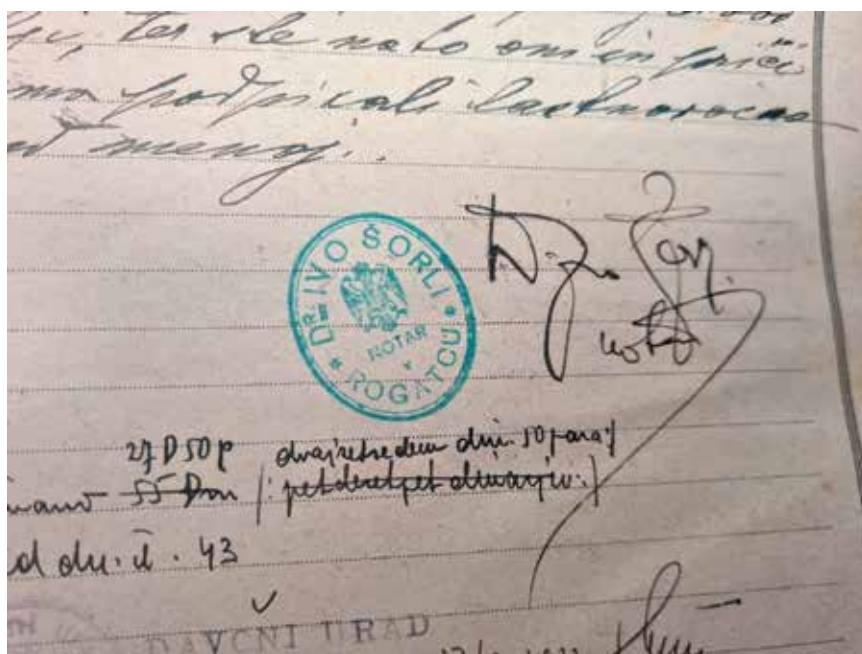 ter ste nato oni in priči
podpisali lastnoročno
menoj.
DR. IVO ŠORLI
NOTAR
v
ROGATCU
notar
27 D 50 p dvajsetsedem din. 50 para/
55 Din /: petdesetpet dinarjev :/
d dn. št. 43
DAVČNI URAD